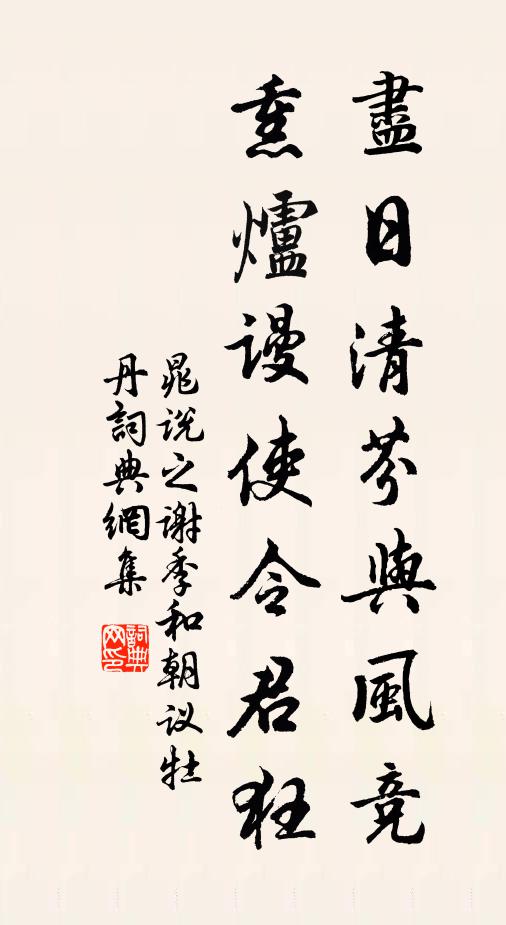 盡日清芬與風竞
熏爐謾使令君狂
晁说之谢季和朝议牡
丹詞典網集
詞典
网印